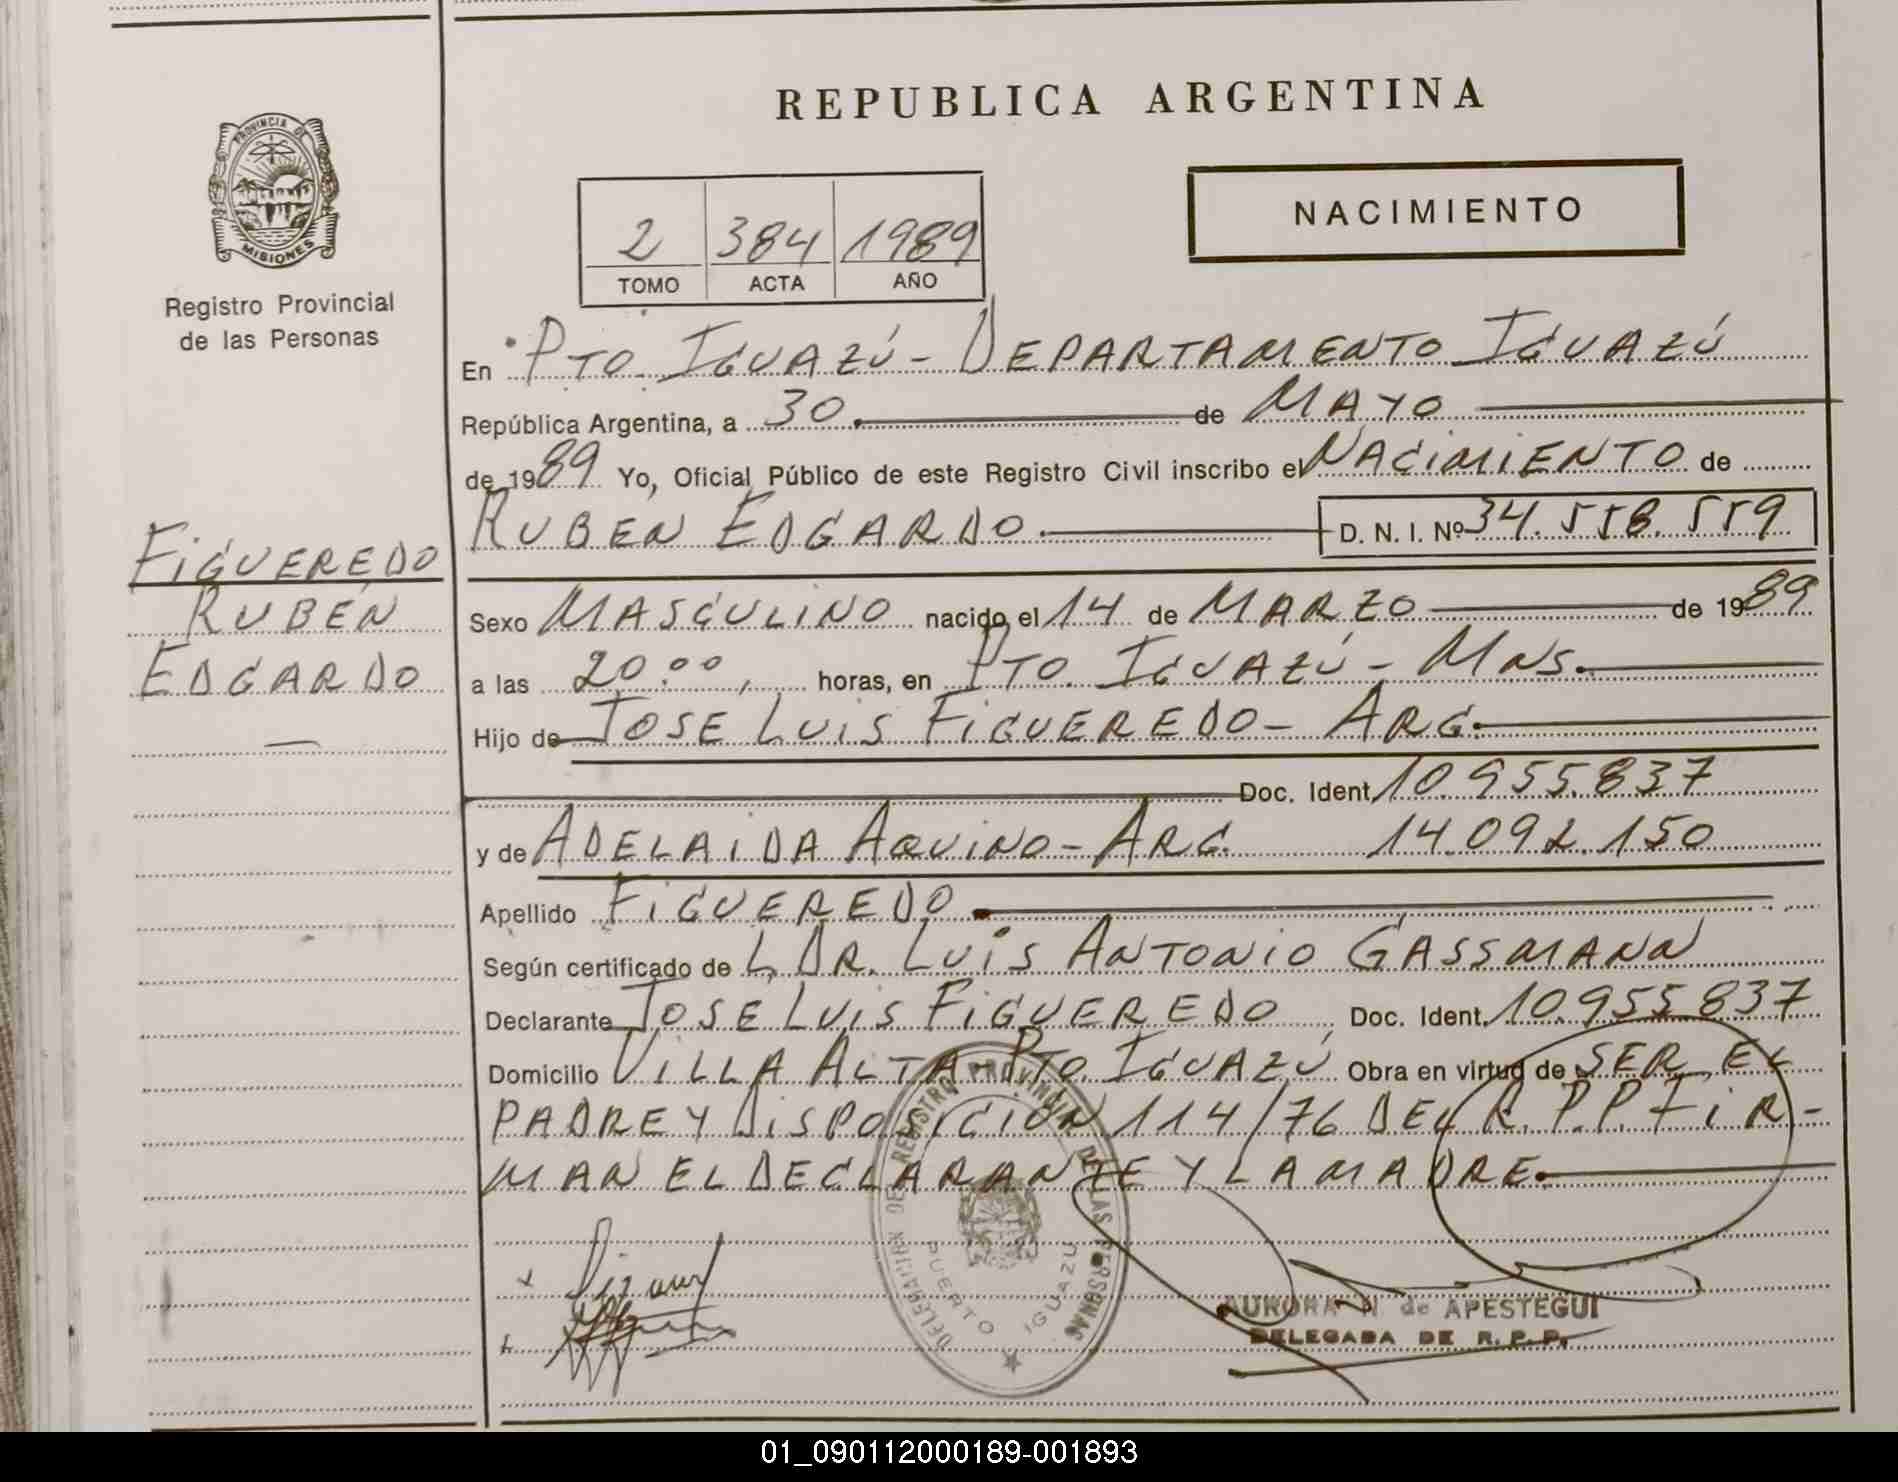 REPUBLICA ARGENTINA
PROVINCIA DE
MISIONES
Registro Provincial
de las Personas
NACIMIENTO
2 384 1989
TOMO ACTA AÑO
En Pto. Iguazú - Departamento Iguazú
República Argentina, a 30 de Mayo
de 1989 Yo, Oficial Público de este Registro Civil inscribo el Nacimiento de
Ruben Edgardo D. N. I. Nº 34.558.559
Figueredo
Rubén
Edgardo
Sexo Masculino nacido el 14 de Marzo de 1989
a las 20:00, horas, en Pto. Iguazú - Mns.
Hijo de Jose Luis Figueredo - Arg.
Doc. Ident. 10.955.837
y de Adelaida Aquino - Arg. 14.092.150
Apellido Figueredo
Según certificado de L. Dr. Luis Antonio Gassmann
Declarante Jose Luis Figueredo Doc. Ident. 10.955.837
Domicilio Villa Alta - Pto. Iguazú Obra en virtud de ser el
padre y Disposición 114/76 del R.P.P. Fir-
man el declarante y la madre.
DELEGACION DEL REGISTRO PROVINCIAL DE LAS PERSONAS
PUERTO IGUAZU
AURORA N de APESTEGUI
DELEGADA DE R. P. P.
01_090112000189-001893